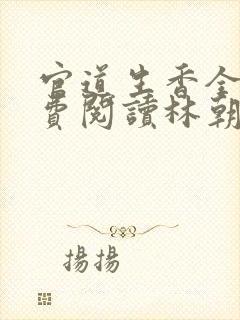 官道生香全
費閱讀林朝
揚揚